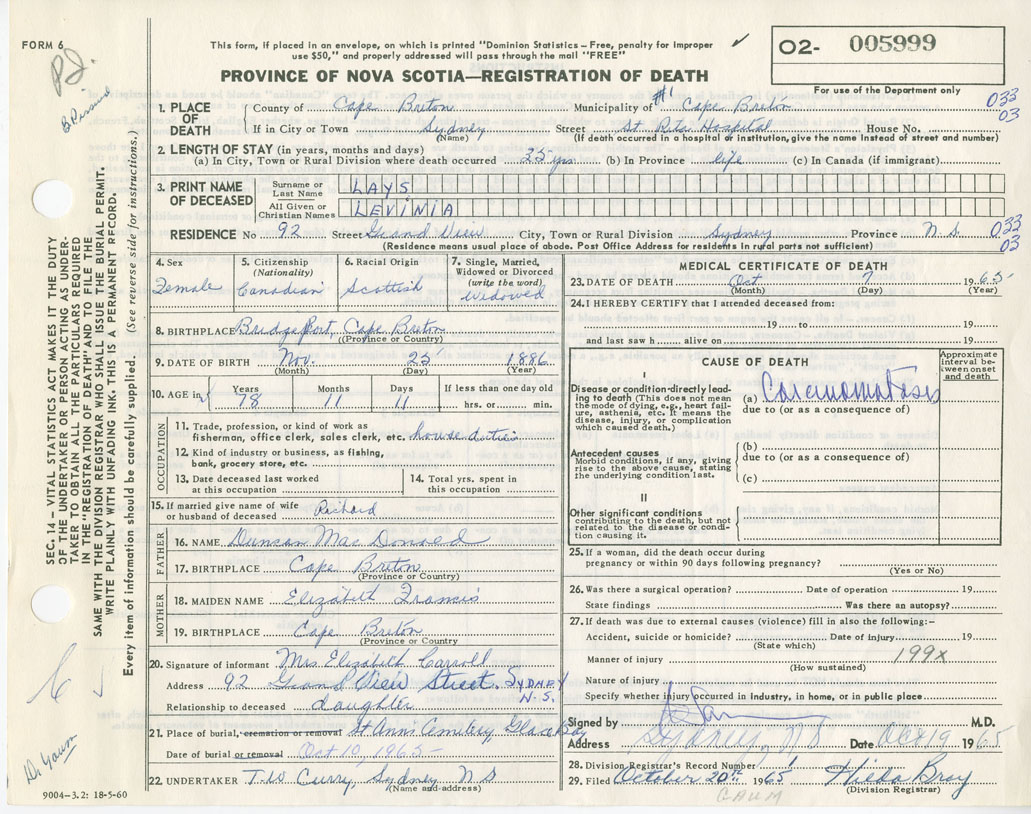 FORM 6
This form, if placed in an envelope, on which is printed "Dominion Statistics – Free, penalty for improper
use $50," and properly addressed will pass through the mail "FREE"
PROVINCE OF NOVA SCOTIA—REGISTRATION OF DEATH
O2- 005999
For use of the Department only
033
03
SEC. 14 – VITAL STATISTICS ACT MAKES IT THE DUTY
OF THE UNDERTAKER OR PERSON ACTING AS UNDER-
TAKER TO OBTAIN ALL THE PARTICULARS REQUIRED
IN THE "REGISTRATION OF DEATH" AND TO FILE THE
SAME WITH THE DIVISION REGISTRAR WHO SHALL ISSUE THE BURIAL PERMIT.
WRITE PLAINLY WITH UNFADING INK. THIS IS A PERMANENT RECORD.
Every item of information should be carefully supplied. (See reverse side for instructions.)
1. PLACE OF DEATH
County of Cape Breton Municipality of #1 Cape Breton
If in City or Town Sydney Street St Rita Hospital House No.
(Name) (If death occurred in a hospital or institution, give the name instead of street and number)
2. LENGTH OF STAY (in years, months and days)
(a) In City, Town or Rural Division where death occurred 25 yrs (b) In Province life (c) In Canada (if immigrant)
3. PRINT NAME OF DECEASED
Surname or Last Name LAYS
All Given or Christian Names LEVINIA
RESIDENCE No 92 Street Grand View City, Town or Rural Division Sydney Province N S
033
03
(Residence means usual place of abode. Post Office Address for residents in rural parts not sufficient)
4. Sex Female
5. Citizenship (Nationality) Canadian
6. Racial Origin Scottish
7. Single, Married, Widowed or Divorced (write the word) widowed
8. BIRTHPLACE Bridgeport, Cape Breton
(Province or Country)
9. DATE OF BIRTH Nov. 25 1886
(Month) (Day) (Year)
10. AGE in Years 78 Months 11 Days 11 If less than one day old
hrs. or min.
OCCUPATION
11. Trade, profession, or kind of work as
fisherman, office clerk, sales clerk, etc. house duties
12. Kind of industry or business, as fishing,
bank, grocery store, etc.
13. Date deceased last worked
at this occupation
14. Total yrs. spent in
this occupation
15. If married give name of wife
or husband of deceased Richard
FATHER
16. NAME Duncan Mac Donald
17. BIRTHPLACE Cape Breton
(Province or Country)
MOTHER
18. MAIDEN NAME Elizabeth Francis
19. BIRTHPLACE Cape Breton
(Province or Country
20. Signature of informant Mrs Elizabeth Carroll
Address 92 Grand View Street. SYDNEY
N.S.
Relationship to deceased daughter
21. Place of burial, cremation or removal St Ann's Cemetery, Glace Bay
Date of burial or removal Oct 10, 1965
22. UNDERTAKER T.W Curry, Sydney N S
(Name and address)
9004–3.2: 18-5-60
MEDICAL CERTIFICATE OF DEATH
23. DATE OF DEATH Oct 7 1965
(Month) (Day) (Year)
24. I HEREBY CERTIFY that I attended deceased from:
19 to 19
and last saw h alive on 19
CAUSE OF DEATH
Approximate
interval be-
tween onset
and death
I
Disease or condition directly lead-
ing to death (This does not mean
the mode of dying, e.g., heart failure,
asthenia, etc. It means the
disease, injury, or complication
which caused death.)
(a) Carcinomatosis
due to (or as a consequence of)
Antecedent causes
Morbid conditions, if any, giving
rise to the above cause, stating
the underlying condition last.
(b)
due to (or as a consequence of)
(c)
II
Other significant conditions
contributing to the death, but not
related to the disease or condi-
tion causing it.
25. If a woman, did the death occur during
pregnancy or within 90 days following pregnancy?
(Yes or No)
26. Was there a surgical operation? Date of operation 19
State findings Was there an autopsy?
27. If death was due to external causes (violence) fill in also the following:-
Accident, suicide or homicide? Date of injury 19
(State which)
199X
Manner of injury
(How sustained)
Nature of injury
Specify whether injury occurred in industry, in home, or in public place
Signed by M.D.
Address Sydney, N S Date Oct 19 1965
28. Division Registrar's Record Number
29. Filed October 20th 1965 Hilda Bray
(Division Registrar)